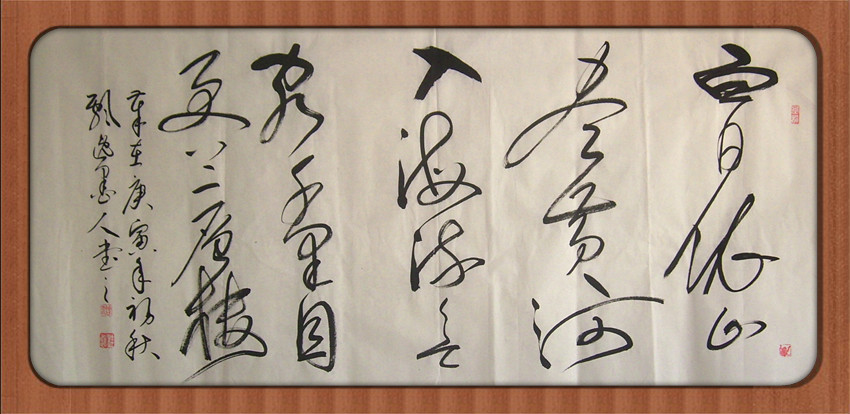 白日依山
尽黄河
入海流欲
穷千里目
更上一层楼
岁在庚寅年初秋
飘逸墨人书之